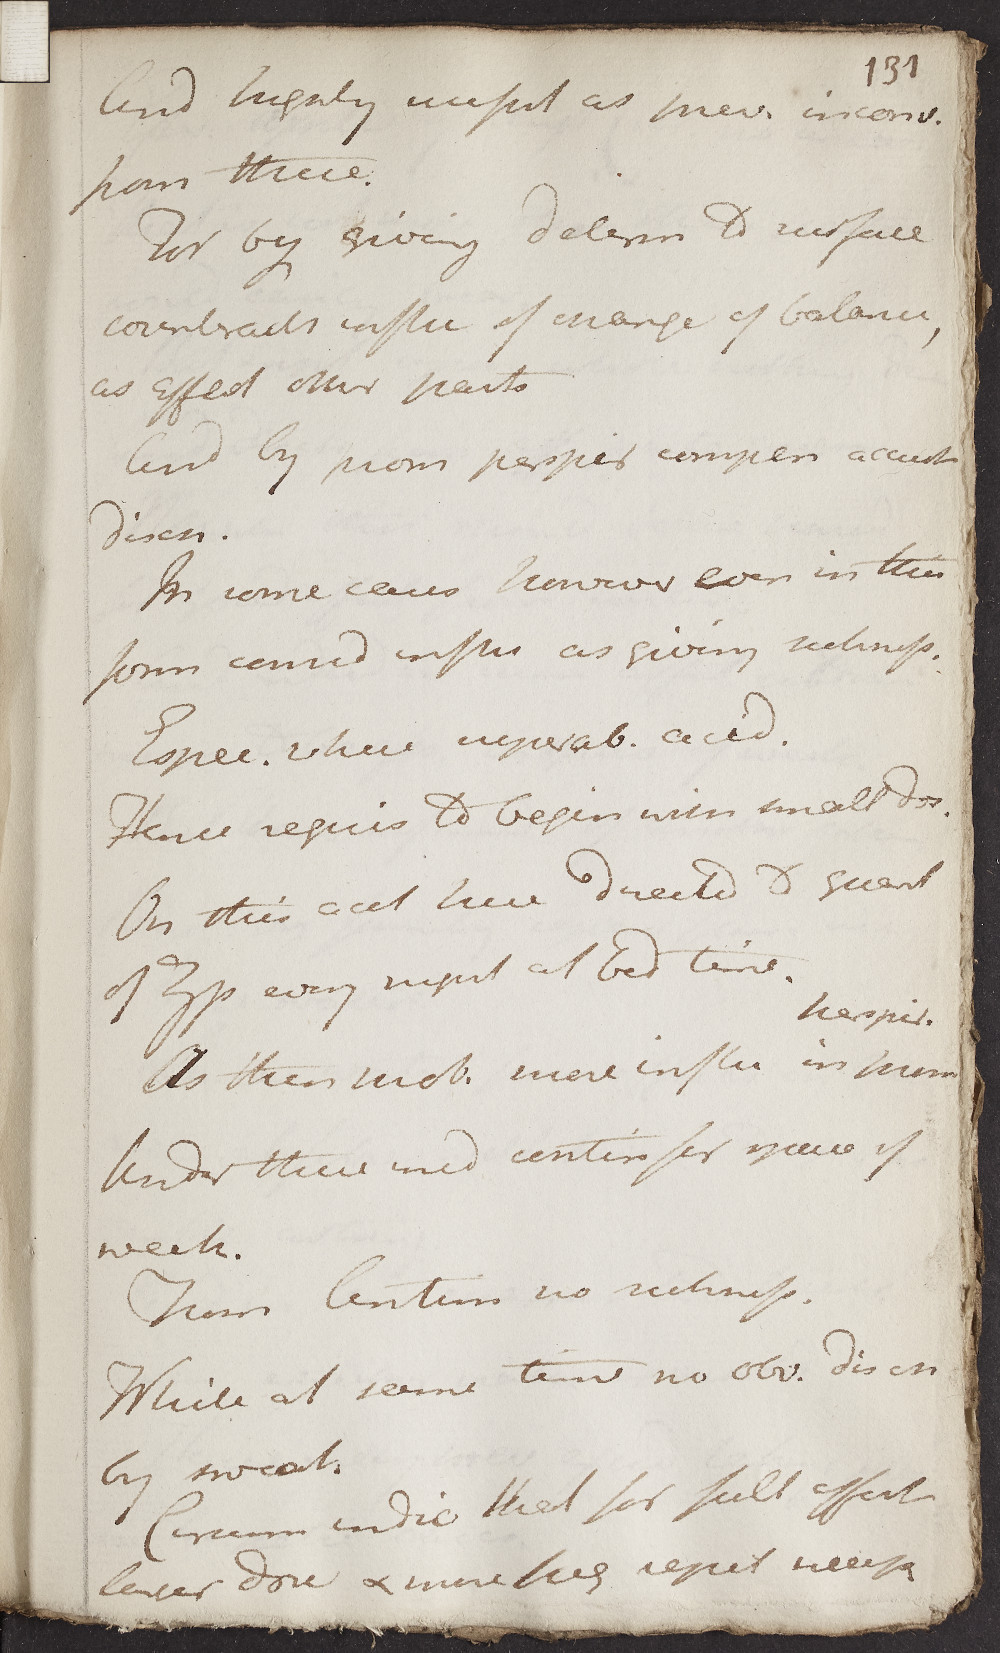 131
And highly useful as prev. inconv.
from these.
For by giving determ to surface
counteracts influ of change of balance,
as affect other parts
And by prom perspir compen accust
discn.
In some cases however even in this
form consid influ as giving sickness.
Espec. where superab. acid.
Hence requis to begin with small dos.
On this acct here directed to
of every night at bed time.
perspir.
As then prob. more influ in prom
Under these med contin for space of
week.
From Antim no sickness.
While at same time no obv. discn
by sweat.
Circum indic that for full effect
larger dose & more freq repet necess